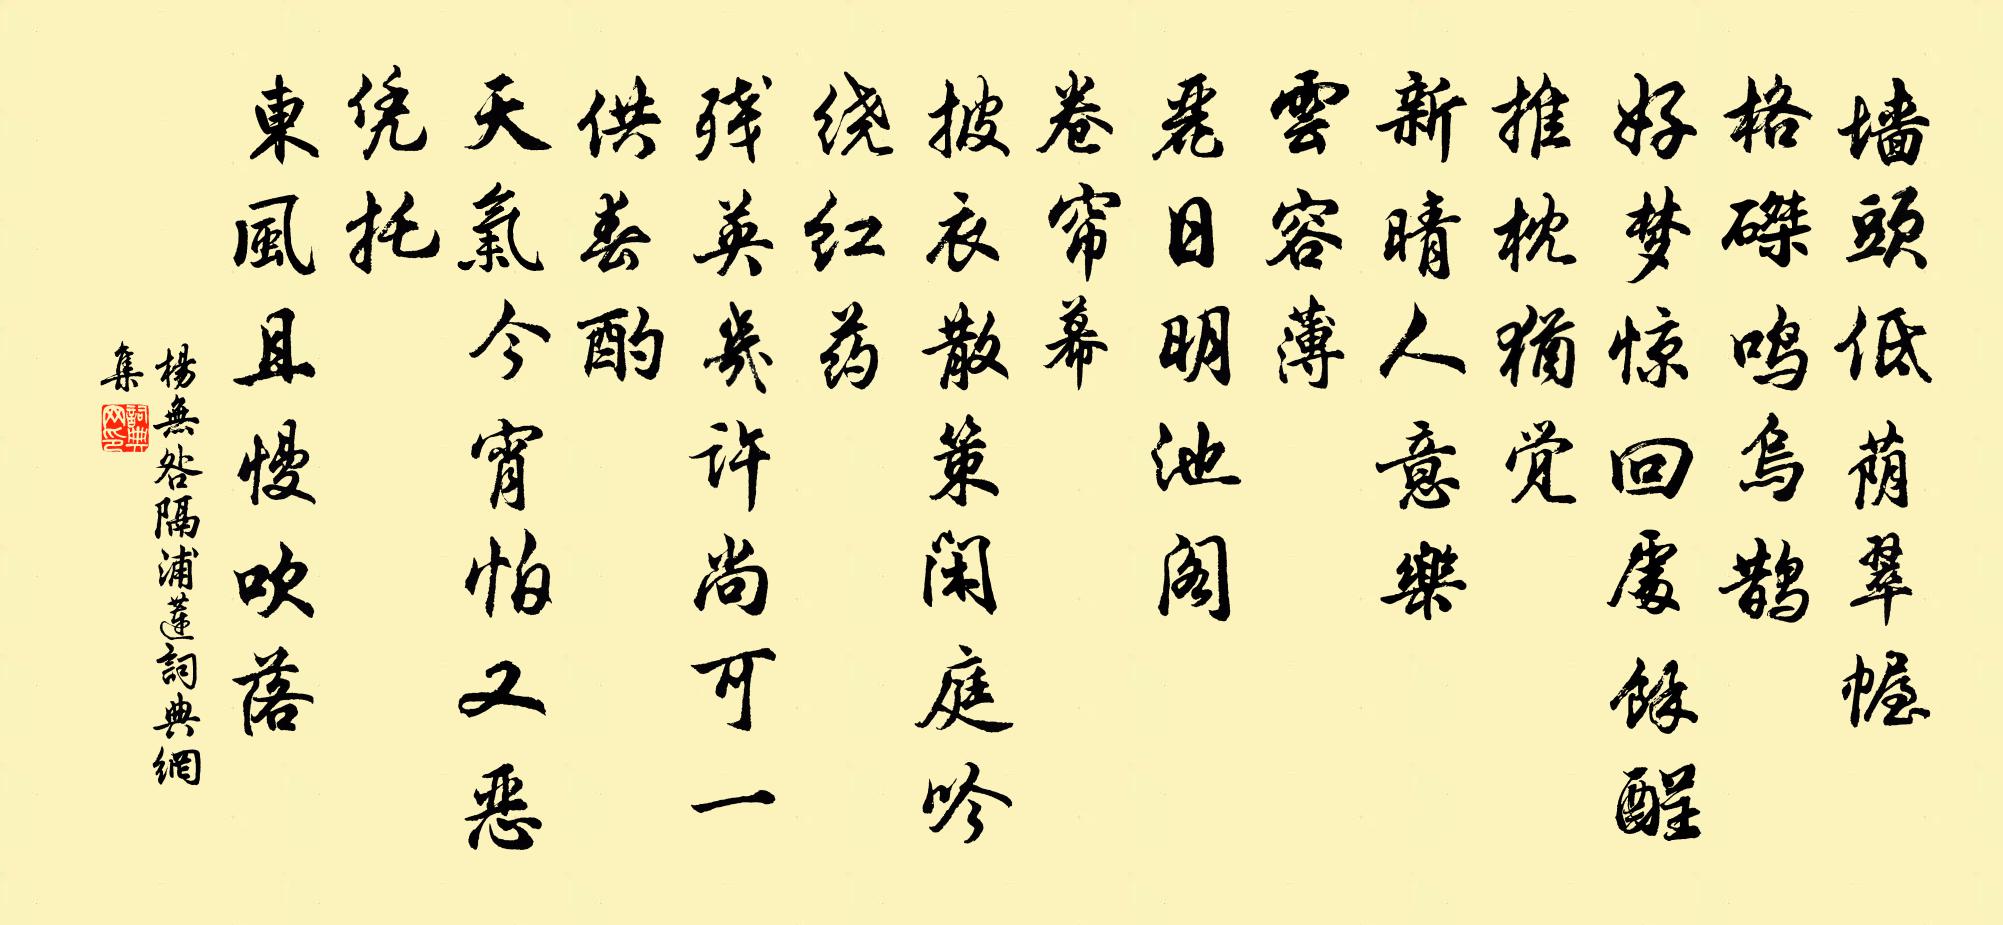 墙頭低荫翠幄
格磔鸣烏鹊
好梦惊回處馀酲
推枕猶觉
新晴人意樂
雲容薄
麗日明池阁
卷帘幕
披衣散策闲庭吟
绕红药
残英幾许尚可一
供春酌
天氣今宵怕又恶
凭托
東風且慢吹落
楊無咎隔浦蓮詞典網
集
詞典网印